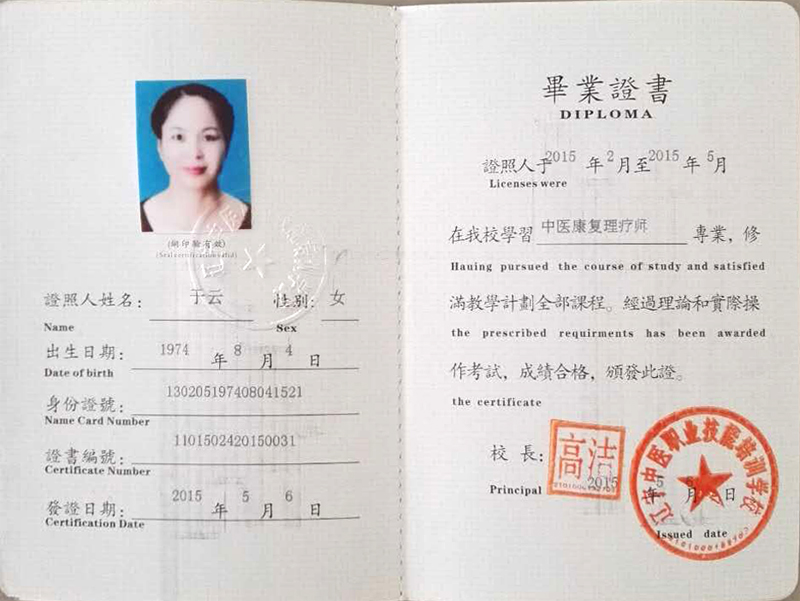 (鋼印驗有效)
(Seal certification valid)
證照人姓名：于云 性别：女
Name Sex
出生日期：1974 年 8 月 4 日
Date of birth
身份證號：130205197408041521
Name Card Number
證書編號：1101502420150031
Certificate Number
發證日期：2015 年 5 月 6 日
Certification Date
畢業證書
DIPLOMA
證照人于2015 年 2 月至2015 年 5月
Licenses were
在我校學習 中医康复理疗师 專業，修
Hauing pursued the course of study and satisfied
滿教學計劃全部課程。經過理論和實際操
the prescribed requirments has been awarded
作考試，成績合格，頒發此證。
the certificate
校長：高洁
Principal 2015 年 5 月 日
中医职业技能培训学校
Issued date